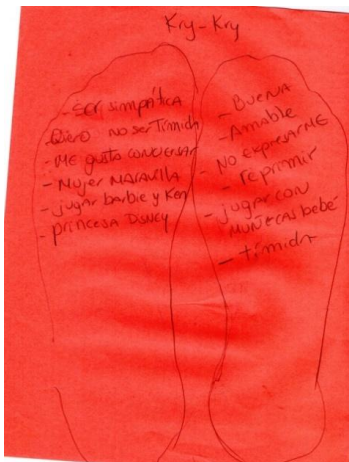 Kry-Kry
- SER simpática
Quiero no ser Tímida
- ME gusta conversar
- Mujer MARAVILLA
- jugar barbie y Ken
- princesa DISNEY
- BUENA
- Amable
- NO EXPRESARME
- reprimir
- jugar con
MUÑECAS bebé
- tímida